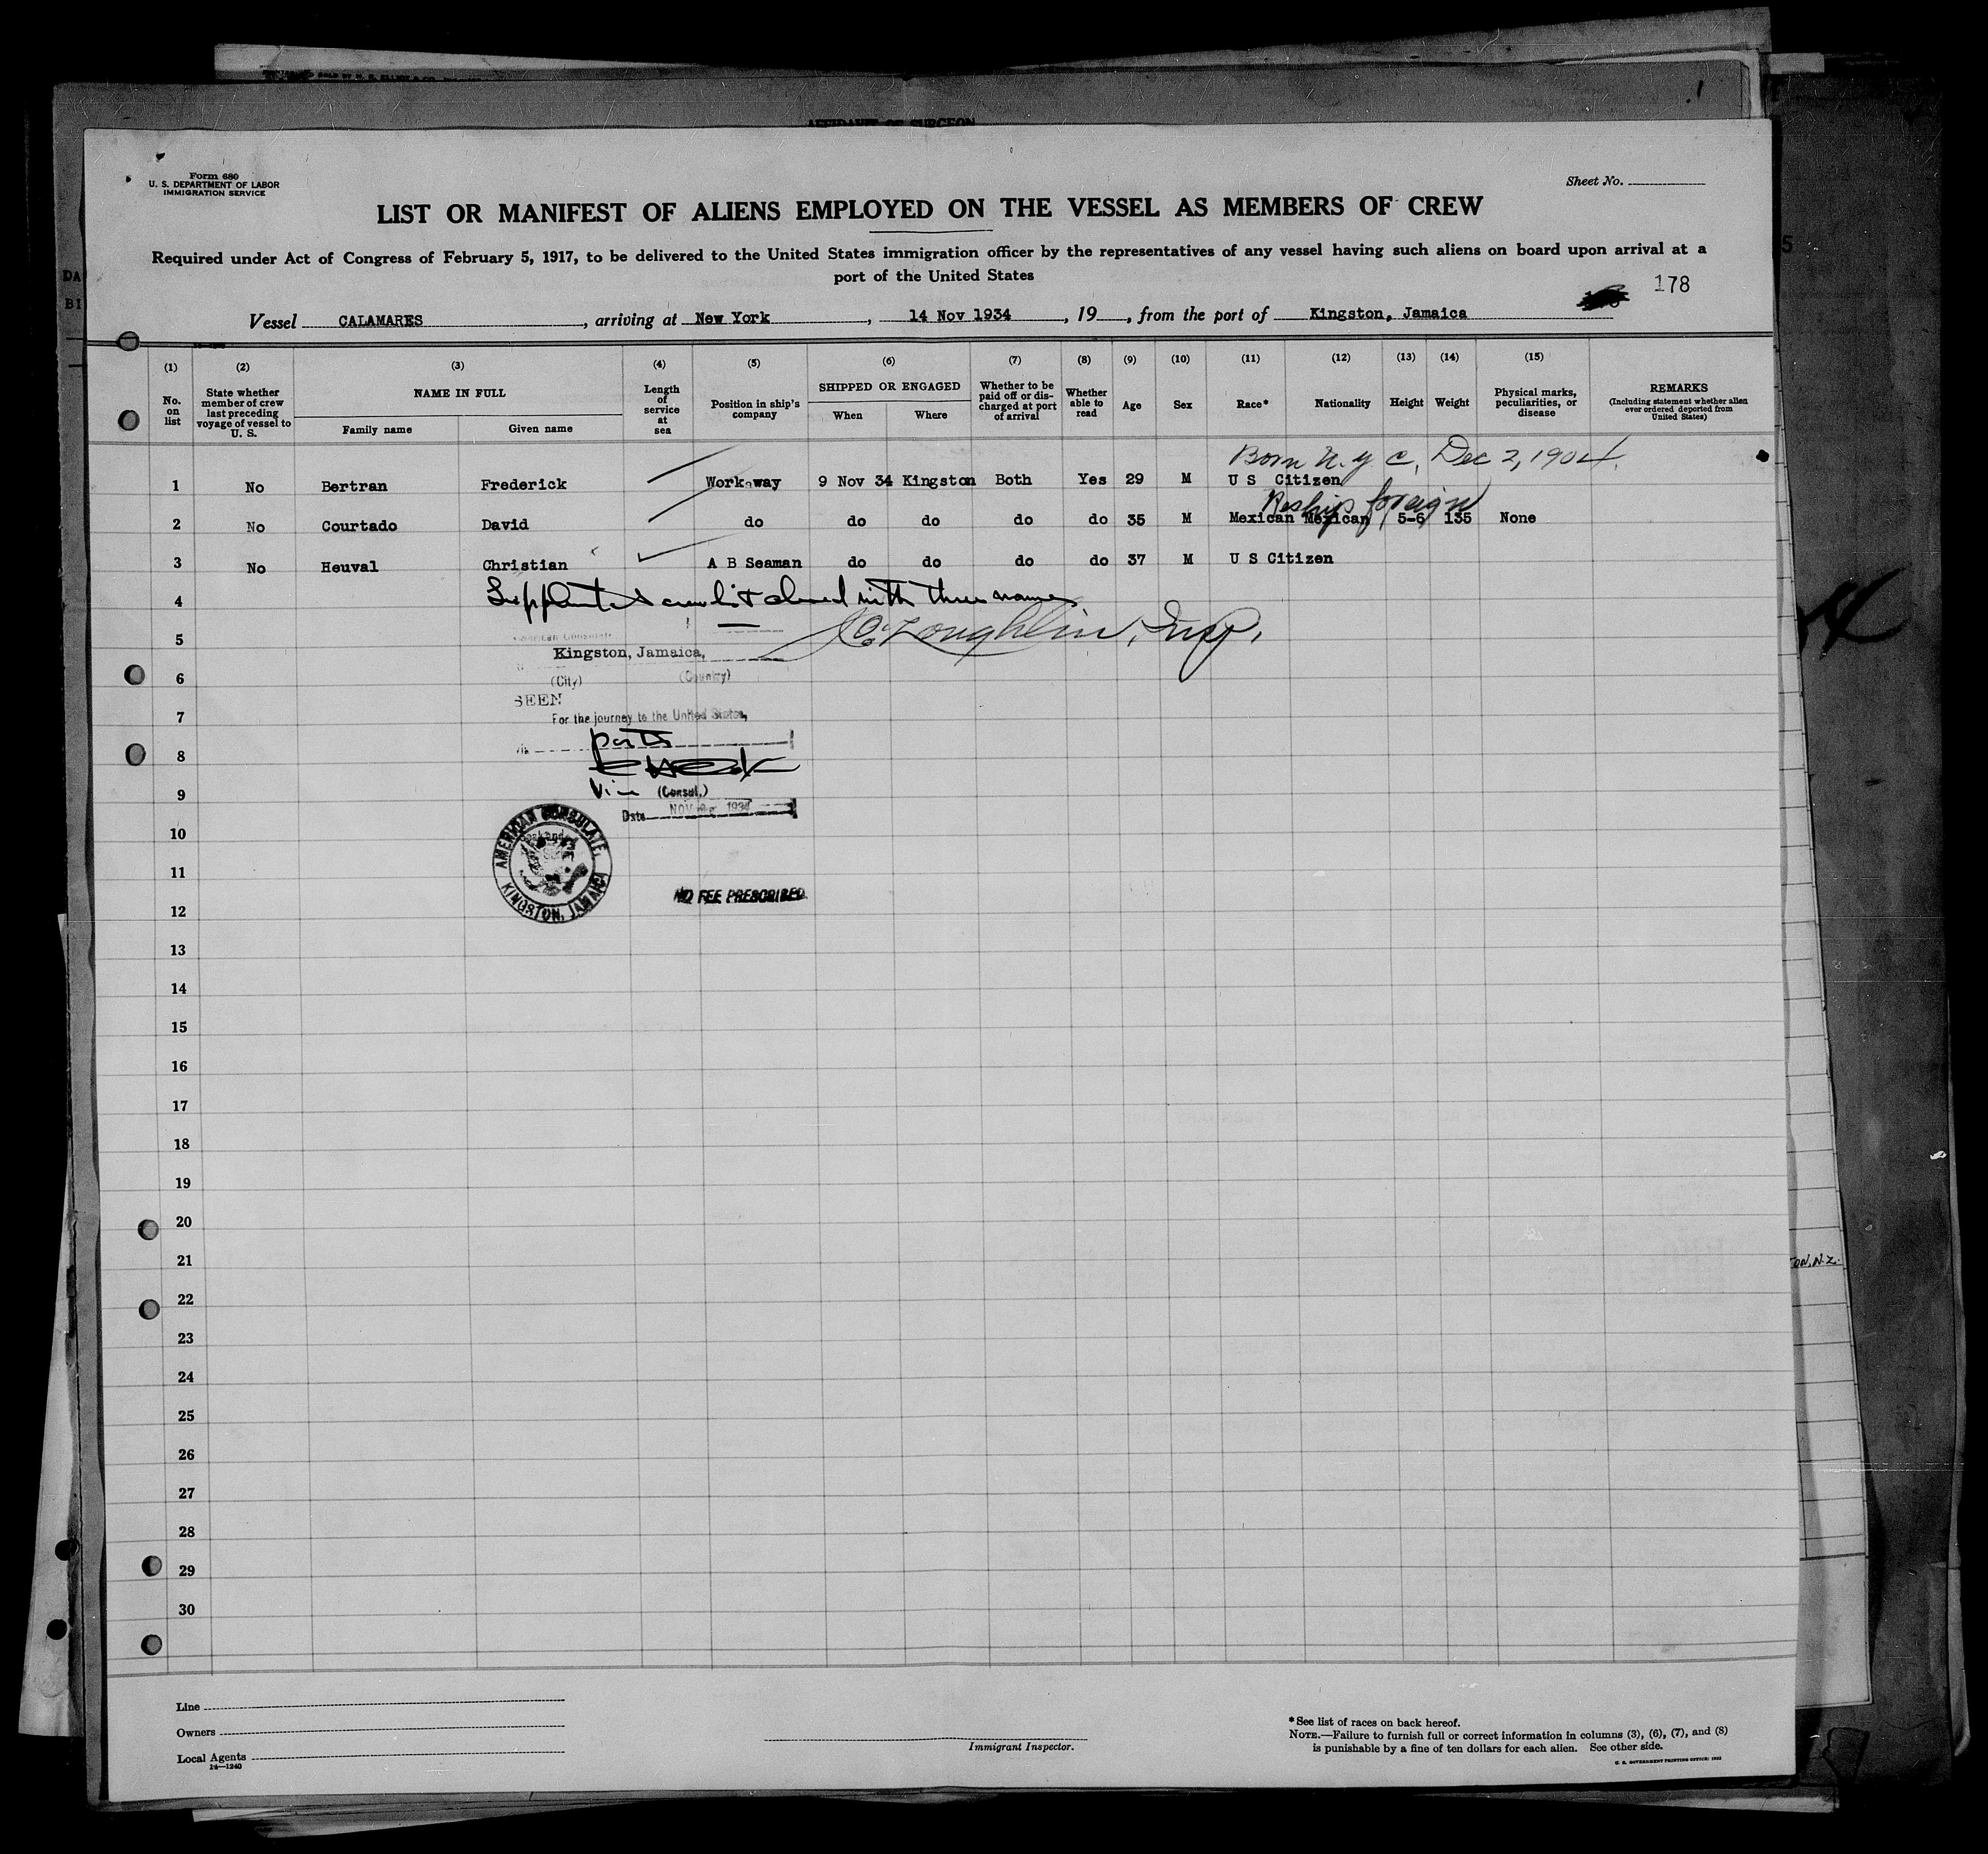 AFFIDAVIT OF SURGEON
Form 680
U. S. DEPARTMENT OF LABOR
IMMIGRATION SERVICE
Sheet No.
LIST OR MANIFEST OF ALIENS EMPLOYED ON THE VESSEL AS MEMBERS OF CREW
Required under Act of Congress of February 5, 1917, to be delivered to the United States immigration officer by the representatives of any vessel having such aliens on board upon arrival at a
port of the United States
178
Vessel CALAMARES, arriving at New York, 14 Nov 1934, 19, from the port of Kingston, Jamaica
(1) (2) (3) (4) (5) (6) (7) (8) (9) (10) (11) (12) (13) (14) (15)
No. on list
State whether member of crew last preceding voyage of vessel to U. S.
NAME IN FULL
Family name Given name
Length of service at sea
Position in ship's company
SHIPPED OR ENGAGED
When Where
Whether to be paid off or discharged at port of arrival
Whether able to read
Age Sex Race* Nationality Height Weight
Physical marks, peculiarities, or disease
REMARKS
(Including statement whether alien ever ordered deported from United States)
Born N. Y C, Dec 2, 1904.
1 No Bertran Frederick Workaway 9 Nov 34 Kingston Both Yes 29 M U S Citizen
Reships foreign
2 No Courtado David do do do do do 35 M Mexican Mexican 5-6 135 None
3 No Heuval Christian A B Seaman do do do do 37 M U S Citizen
4 crew list closed with three names
5 Loughlin, Insp.
American Consulate
Kingston, Jamaica,
6 (City) (Country)
SEEN
7 For the journey to the United States,
8
9 (Consul,)
Date NOV 1934
10
AMERICAN CONSULATE, KINGSTON, JAMAICA
11
NO FEE PRESCRIBED.
12
13
14
15
16
17
18
19
20
21
22
23
24
25
26
27
28
29
30
TON, N.Z.
Line
Owners
Local Agents
14—1240
Immigrant Inspector.
*See list of races on back hereof.
NOTE.—Failure to furnish full or correct information in columns (3), (6), (7), and (8)
is punishable by a fine of ten dollars for each alien. See other side.
U. S. GOVERNMENT PRINTING OFFICE: 1932